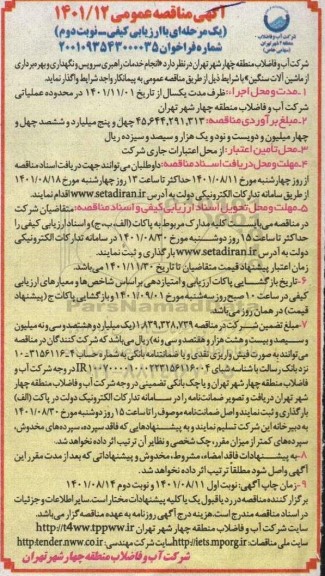 شرکت آب و فاضلاب
منطقه ۴ شهر تهران
(سهامی خاص)
آگهی مناقصه عمومی ۱۴۰۱/۱۲
(یک مرحله ای با ارزیابی کیفی - نوبت دوم)
شماره فراخوان ۲۰۰۱۰۹۳۵۴۳۰۰۰۰۳۵
شرکت آب و فاضلاب منطقه چهار شهر تهران در نظر دارد «انجام خدمات راهبری سرویس و نگهداری و بهره برداری
از ماشین آلات سنگین» با شرایط ذیل از طریق مناقصه عمومی به پیمانکار واجد شرایط واگذار نماید.
۱- مدت و محل اجراء: ظرف مدت یکسال از تاریخ ۱۴۰۱/۱۱/۰۱ در محدوده عملیاتی
شرکت آب و فاضلاب منطقه چهار شهر تهران
۲- مبلغ برآوردی مناقصه: ۴۵,۶۴۴,۲۹۱,۳۱۳ چهل و پنج میلیارد و ششصد و چهل و
چهار میلیون و دویست و نود و یک هزار و سیصد و سیزده ریال
۳- محل تأمین اعتبار: از محل اعتبارات جاری شرکت
۴- مهلت و محل دریافت اسناد مناقصه: داوطلبان می توانند جهت دریافت اسناد مناقصه
از روز چهارشنبه مورخ ۱۴۰۱/۰۸/۱۱ حداکثر تا ساعت ۱۳ روز چهارشنبه مورخ ۱۴۰۱/۰۸/۱۸
از طریق سامانه تدارکات الکترونیکی دولت به آدرس www.setadiran.ir اقدام نمایند.
۵- مهلت و محل تحویل اسناد ارزیابی کیفی و اسناد مناقصه: متقاضیان شرکت
در مناقصه می بایست کلیه مدارک مربوط به پاکات (الف، ب، ج) و اسناد ارزیابی کیفی را
حداکثر تا ساعت ۱۵ روز دوشنبه مورخ ۱۴۰۱/۰۸/۳۰ در سامانه تدارکات الکترونیکی
دولت به آدرس www.setadiran.ir بارگذاری و ثبت نمایند.
زمان اعتبار پیشنهاد قیمت متقاضیان تا تاریخ ۱۴۰۱/۱۱/۳۰ می باشد.
۶- تاریخ بازگشایی پاکات ارزیابی و امتیازدهی بر اساس شاخص ها و معیارهای ارزیابی
کیفی در ساعت ۱۰ صبح روز سه شنبه مورخ ۱۴۰۱/۰۹/۰۱ و بازگشایی پاکات ج (پیشنهاد
قیمت) در همان روز می باشد.
۷- مبلغ تضمین شرکت در مناقصه ۱,۸۳۹,۳۲۸,۷۳۹ (یک میلیارد و هشتصد و سی و نه میلیون
و سیصد و بیست و هشت هزار و هفتصد و سی و نه) ریال می باشد که شرکت کنندگان در مناقصه
می توانند به صورت فیش واریزی نقدی و یا ضمانتنامه بانکی به شماره حساب
نزد بانک رسالت با شناسه شبای در وجه شرکت آب و
فاضلاب منطقه چهار شهر تهران و یا چک بانکی تضمینی در وجه شرکت آب و فاضلاب منطقه چهار
شهر تهران دریافت و تصویر ضمانت نامه را در سامانه تدارکات الکترونیک دولت در پاکت (الف)
بارگذاری و ثبت نمایند و اصل ضمانت نامه موصوف را تا ساعت ۱۵ روز دوشنبه مورخ ۱۴۰۱/۰۸/۳۰
به دبیرخانه این شرکت تسلیم نمایند و به پیشنهادهایی که فاقد سپرده، سپرده های مخدوش،
سپرده های کمتر از میزان مقرر، چک شخصی و نظایر آن ترتیب اثر داده نخواهد شد.
۸- به پیشنهادات فاقد امضاء، مشروط، مخدوش و پیشنهاداتی که بعد از مدت مقرر این
آگهی واصل شود مطلقاً ترتیب اثر داده نخواهد شد.
۹- زمان چاپ آگهی: نوبت اول ۱۴۰۱/۰۸/۱۱ و نوبت دوم ۱۴۰۱/۰۸/۱۴
برگزار کننده مناقصه در رد یا قبول یک یا کلیه پیشنهادات مختار است. سایر اطلاعات و جزئیات
در اسناد مناقصه مندرج است. هزینه درج آگهی روزنامه به عهده مناقصه گزار می باشد.
سایت شرکت آب و فاضلاب منطقه چهار شهر تهران http://t4ww.tpww.ir
سایت ملی مناقصات: http://iets.mporg.ir سایت شرکت مهندسی: http:tender.nww.co.ir
شرکت آب و فاضلاب منطقه چهار شهر تهران